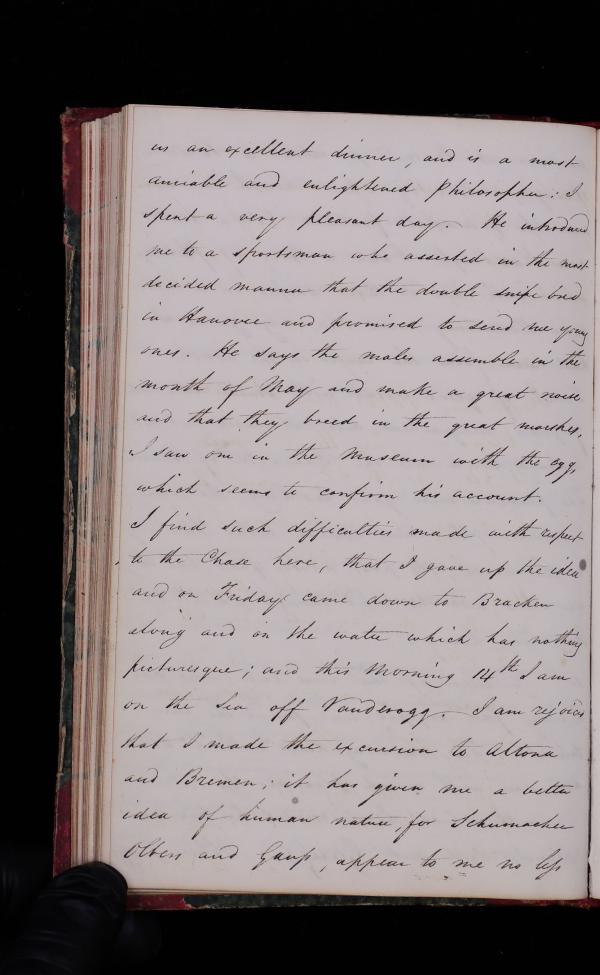 us an excellent dinner, and is a most
amiable and enlightened Philosopher: I
spent a very pleasant day. He introduced
me to a sportsman who asserted in the most
decided manner that the double snipe bred
in Hanover and promised to send me young
ones. He says the males assemble in the
month of May and make a great noise
and that they breed in the great marshes.
I saw one in the Museum with the eggs
which seems to confirm his account.
I find such difficulties made with respect
to the Chase here, that I gave up the idea
and on Friday came down to Bracken
along and on the water which has nothing
picturesque; and this morning 14th I am
on the Sea off Vanderogg. I am rejoiced
that I made the excursion to Altona
and Bremen; it has given me a better
idea of human nature, for Schumacher
Olbers and Gauss, appear to me no less